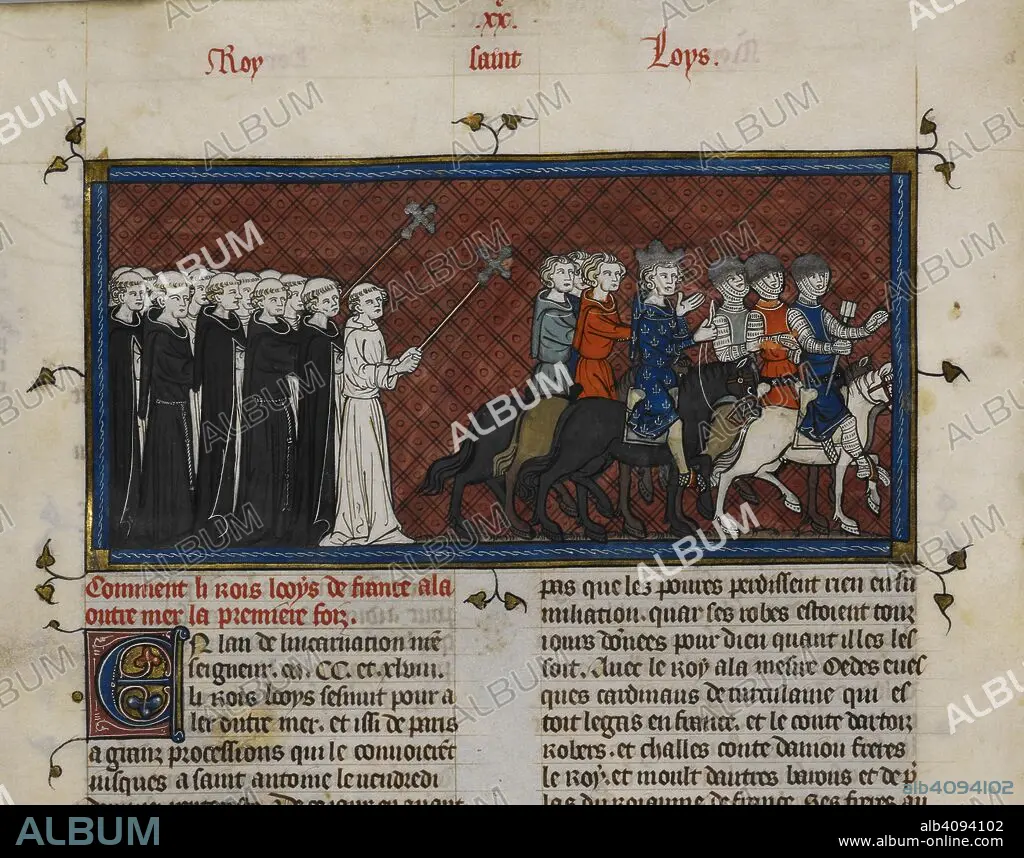 .xx.
Roy saint Loys.
Comment li rois looys de france ala
outre mer la premiere foiz.
En lan de lincarnation nrē
seigneur. m. CC. et xlviii.
li rois looys sesmut pour a
ler outre mer. et issi de paris
a granz processions qui le convoierēt
iusques a saint antoine le vendredi
pas que lez poures perdissent rien en su
miliation. quar ses robes estoient touz
iours dōnees pour dieu quant illes les
soit. Avec le roy ala mesire Oedes eues
ques cardinaus de turculaine qui es
toit legas en france. et le conte dartoiz
robers. et challes conte daniou freres
le roy. et moult dautres barons et de p
las du roiaume de france. Ses freres au
ALBUM
alb4094102
ALBUM
alb4094102
www.album-online.com